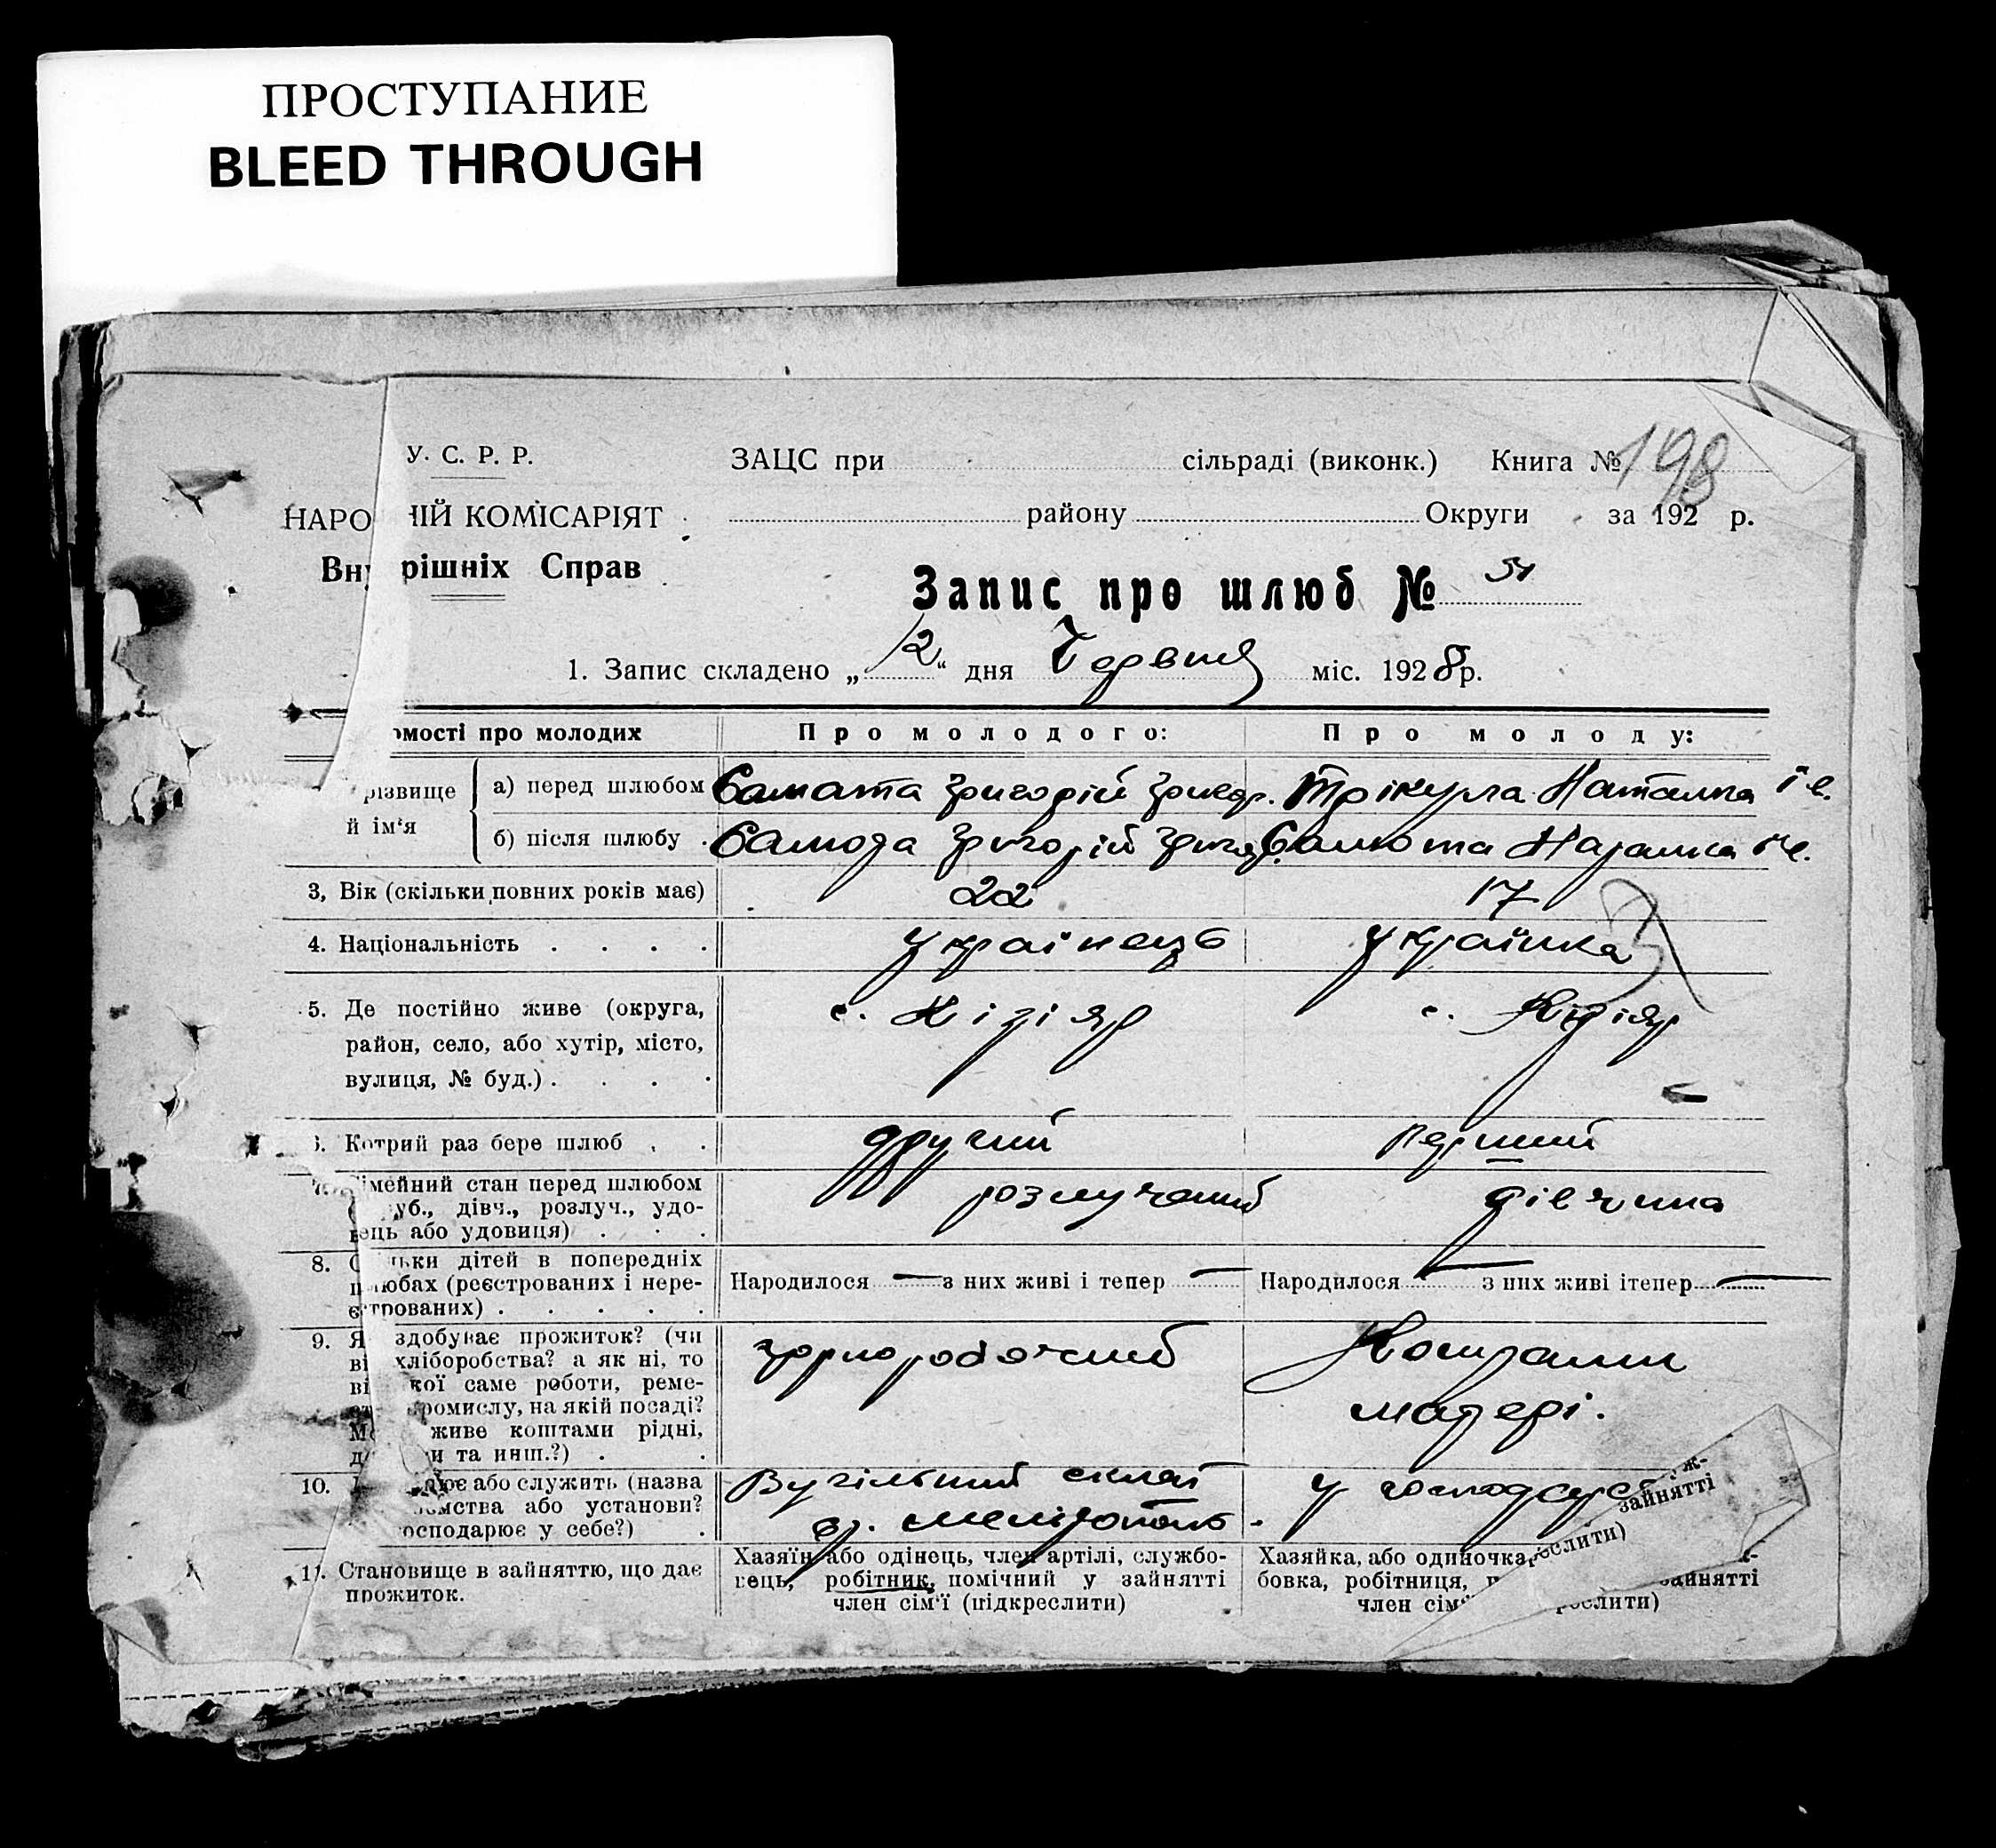 ПРОСТУПАНИЕ
BLEED THROUGH
У. С. Р. Р.
ЗАЦС при сільраді (виконк.) Книга № 198
НАРО НІЙ КОМІСАРІЯТ
району Округи за 192 р.
Вну рішніх Справ
Запис про шлюб №
1. Запис складено „12“ дня Червня міс. 1928 р.
омості про молодих Про молодого: Про молоду:
різвище й ім‘я
а) перед шлюбом Григорій Григор. Наталка
б) після шлюбу Григорій
3, Вік (скільки повних років має) 22 17
4. Національність . . . . українець українка
5. Де постійно живе (округа, район, село, або хутір, місто, вулиця, № буд.) . . . . с. Кізіяр с. Кізіяр
6. Котрий раз бере шлюб . . другий перший
імейний стан перед шлюбом
уб., дівч., розлуч., удо-
вець або удовиця) . . . розлучений дівчина
8. С льки дітей в попередніх
шлюбах (реєстрованих і нере-
єстрованих) . . . . .
Народилося — з них живі і тепер —
Народилося — з них живі ітепер —
9. Я здобуває прожиток? (чи
ві хліборобства? а як ні, то
ві кої саме роботи, реме-
ромислу, на якій посаді?
живе коштами рідні,
и та инш.?) . .
чорноробочий
Коштами
матері.
10. цює або служить (назва
омства або установи?
осподарює у себе?) .
Вугільний склад
ст. Мелітополь.
У
ж-
зайнятті
рослити)
11. Становище в зайняттю, що дає
прожиток.
Хазяїн або одінець, член артілі, службо-
вець, робітник, помічний у зайнятті
член сім‘ї (підкреслити)
Хазяйка, або одиночка,
бовка, робітниця, п зайнятті
член сім‘ рослити)